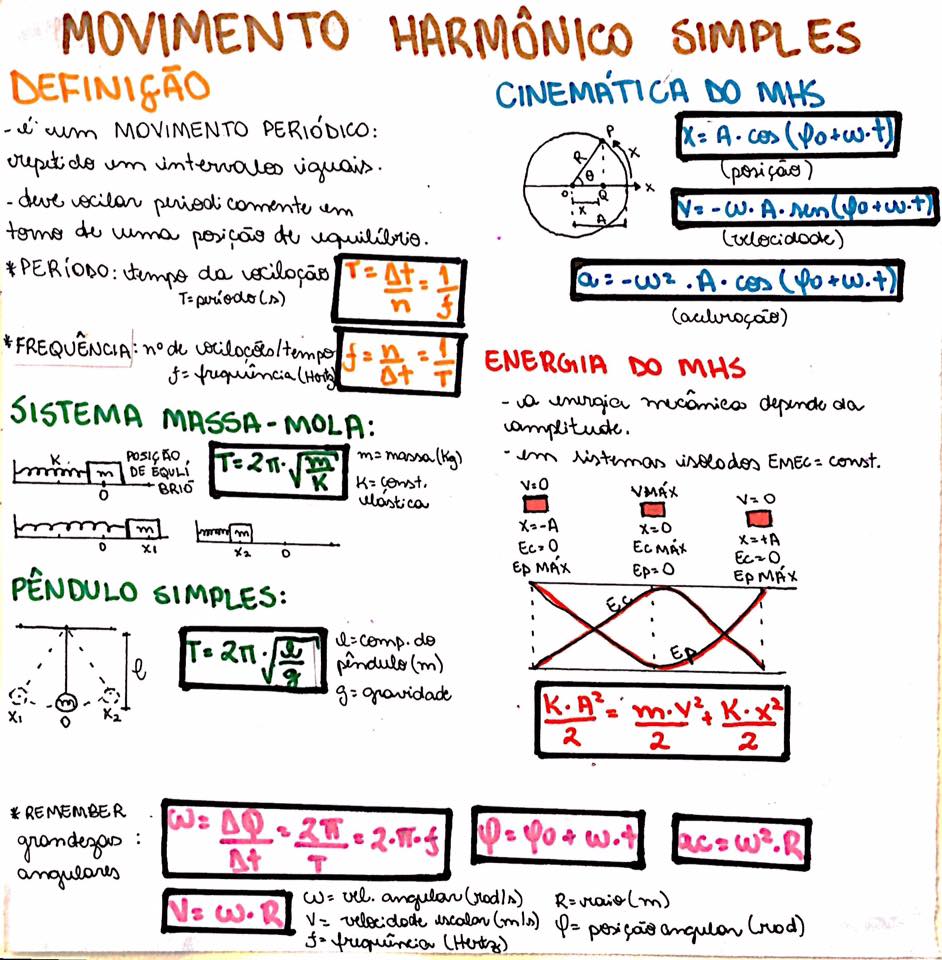 MOVIMENTO HARMÔNICO SIMPLES
DEFINIÇÃO
- é um MOVIMENTO PERIÓDICO:
repetido em intervalos iguais.
- deve oscilar periodicamente em
torno de uma posição de equilíbrio.
*PERÍODO: tempo da oscilação
T=período(s)
T = Δt/n = 1/f
*FREQUÊNCIA: nº de oscilações/tempo
f= frequência (Hertz)
f = n/Δt = 1/T
SISTEMA MASSA-MOLA:
K
m
O
POSIÇÃO
DE EQUILÍ
BRIO
T = 2π·√(m/K)
m= massa (Kg)
K= const.
elástica
m
O X1
m
X2 O
PÊNDULO SIMPLES:
l
X1 m X2
O
T = 2π·√(l/g)
l=comp. do
pêndulo (m)
g= gravidade
CINEMÁTICA DO MHS
P
R
X
θ
O Q X
X
A
X = A · cos (φ0 + ω·t)
(posição)
V = -ω · A · sen (φ0 + ω·t)
(velocidade)
a = -ω² · A · cos (φ0 + ω·t)
(aceleração)
ENERGIA DO MHS
- a energia mecânica depende da
amplitude.
- em sistemas isolados EMEC = const.
V=0 VMÁX V=0
X=-A X=0 X=+A
Ec=0 Ec MÁX Ec=0
Ep MÁX Ep=0 Ep MÁX
Ec
Ep
K·A²/2 = m·V²/2 + K·x²/2
* REMEMBER
grandezas :
angulares
ω = Δφ/Δt = 2π/T = 2·π·f
φ = φ0 + ω·t
ac = ω²·R
V = ω·R
ω= vel. angular (rad/s)
V= velocidade escalar (m/s)
f= frequência (Hertz)
R= raio (m)
φ= posição angular (rad)